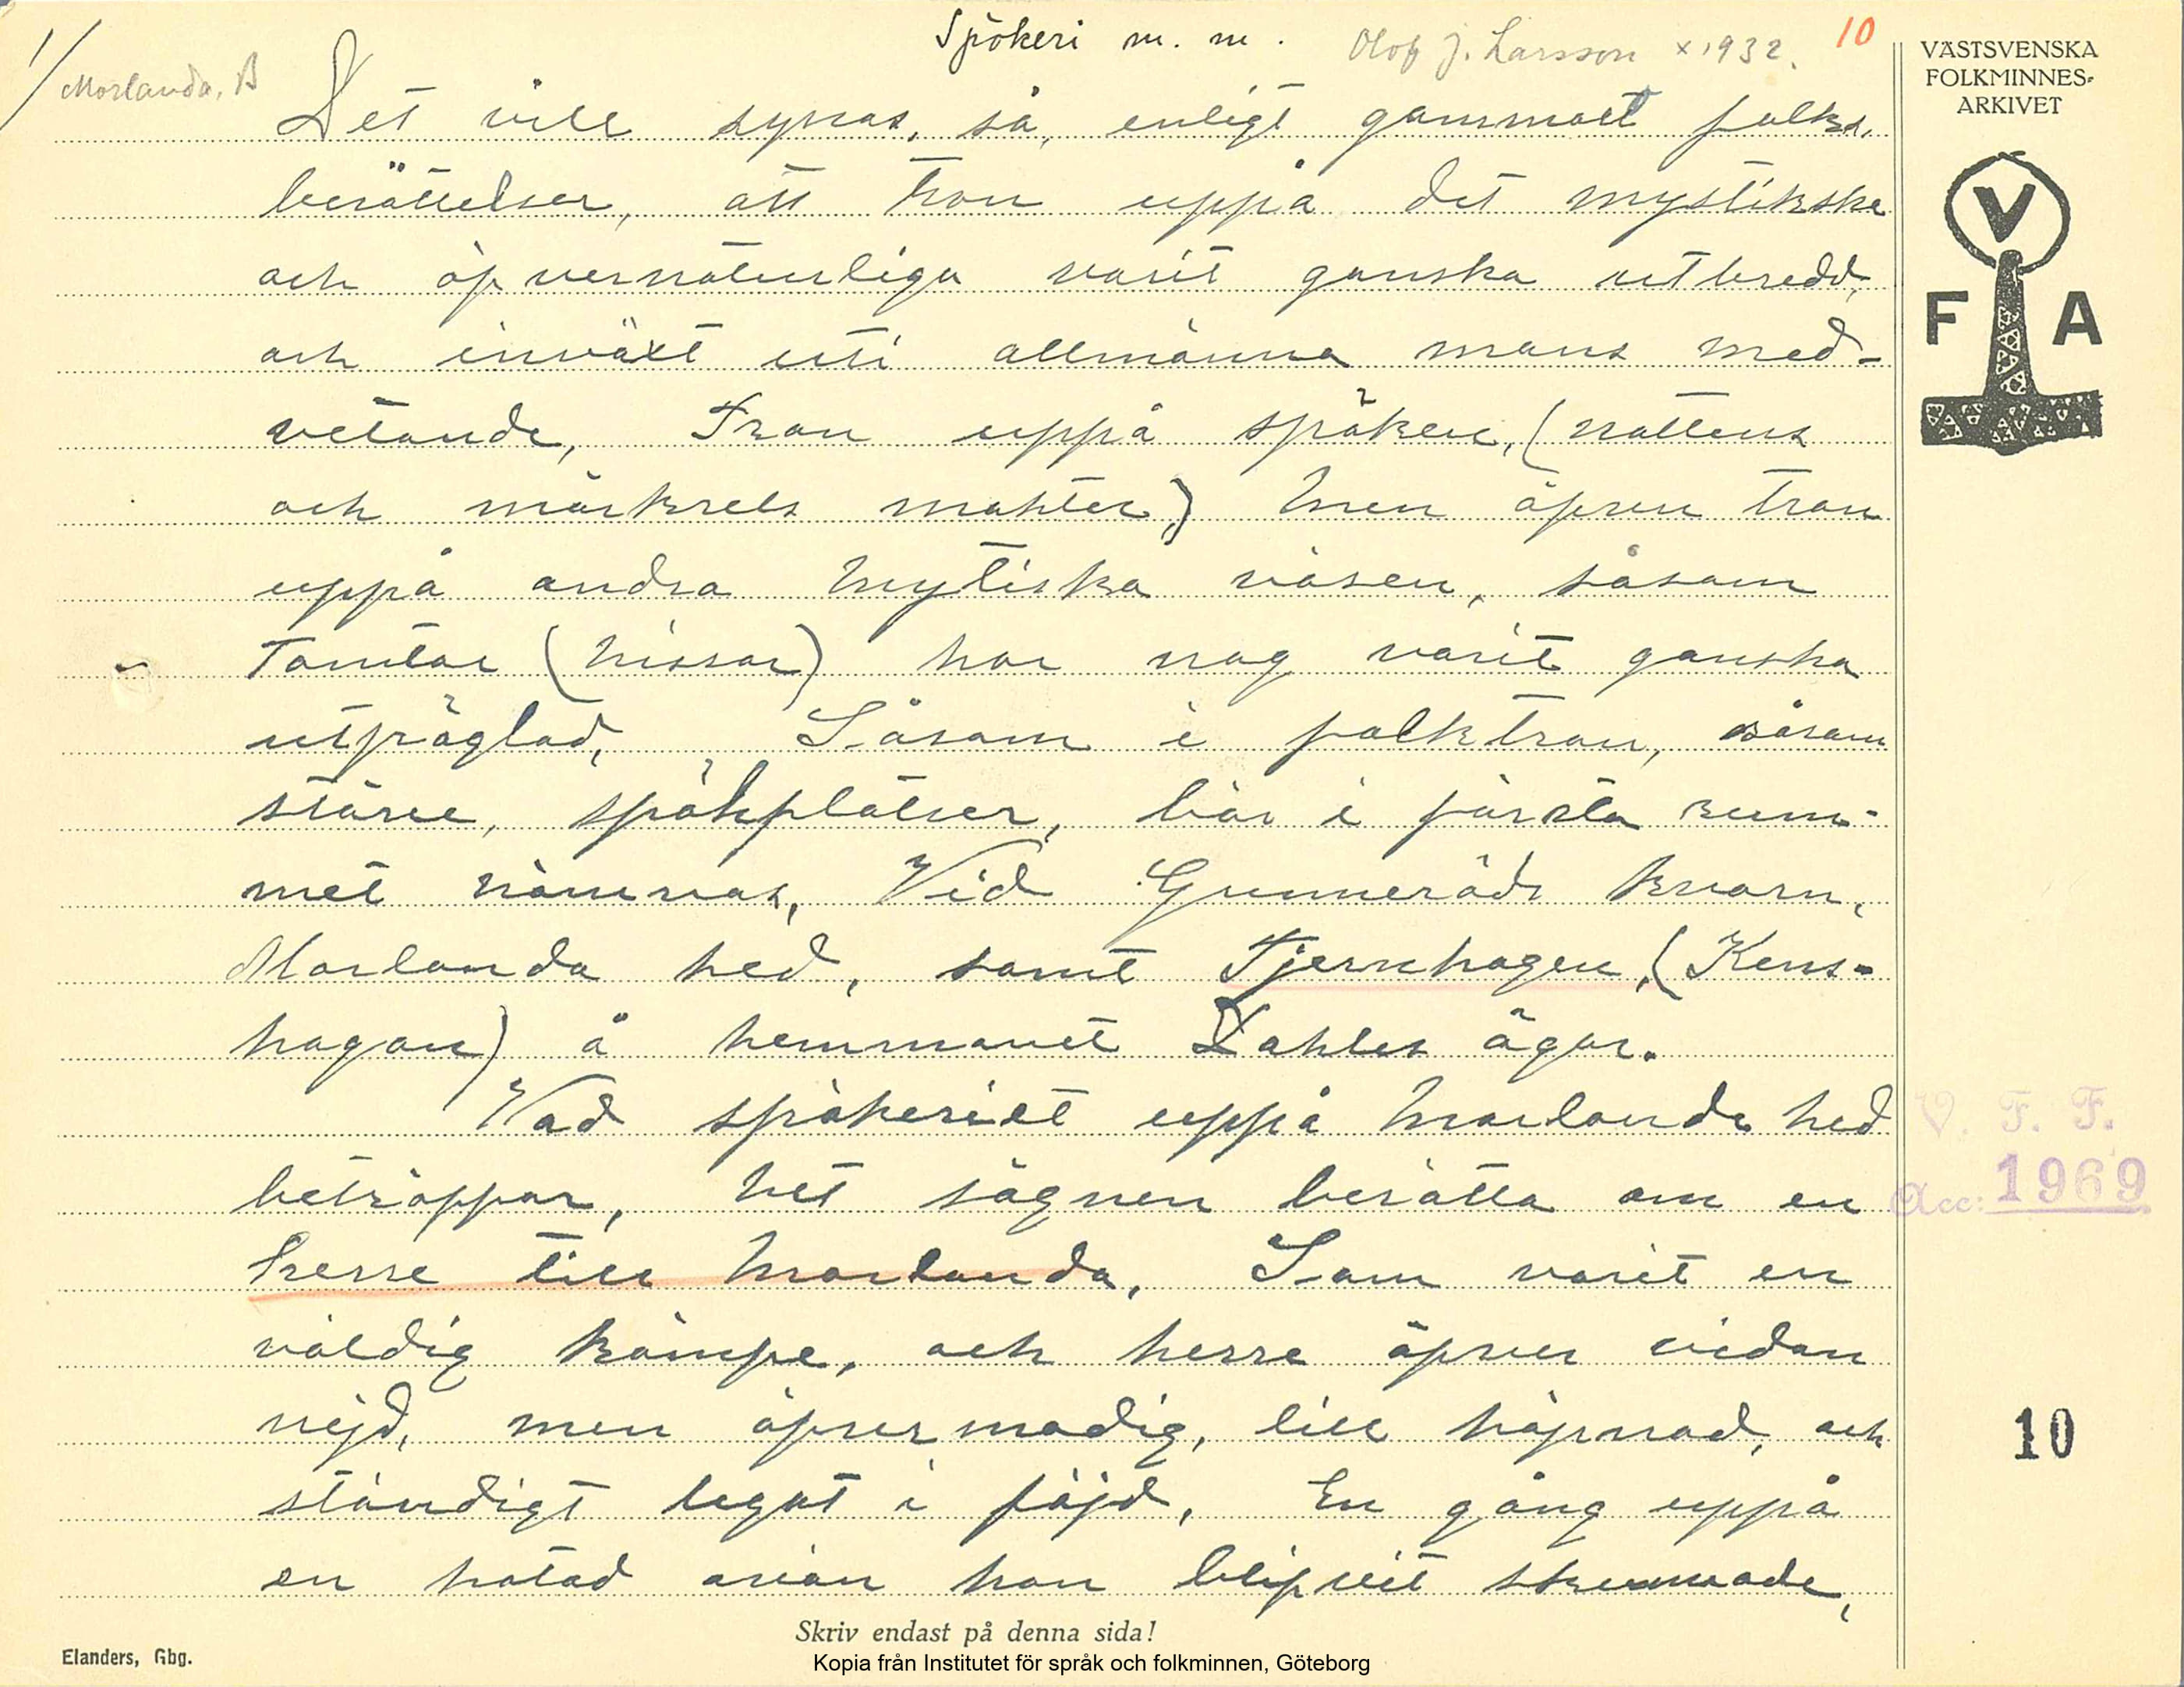 1/
Morlanda, B
Spökeri m. m.
Olof J. Larsson × 1932.
10
VÄSTSVENSKA
FOLKMINNES-
ARKIVET
V
F A
Det vill synas, så, enligt gammalt folks,
berättelser, att tron uppå det mystikske
och öfvernaturliga varit ganska utbredd,
och inväxt uti allmänna mans med-
vetande, Tron uppå spöken, (nattens
och mörkrets makter) Men äfven tron
uppå andra Mytiska väsen, såsom
Tomtar (nissar) har nog varit ganska
utpräglad, Såsom i folktron, såsom
större, spökplatser, bör i första rum-
met nämnas, Vid Gunneröds kvarn,
Morlanda hed, samt Tjernhagen, (Kens-
hagan) å hemmanet ägor.
Vad spökeriet uppå Morlanda hed
beträffar, vet sägnen berätta om en
herre till Morlanda, Som varit en
väldig kämpe, och herre öfver vidan
nejd, men öfvermodig, till häpnad, och
ständigt legat i fäjd, En gång uppå
en hatad ovän han blifvit
Skriv endast på denna sida!
Elanders, Gbg.
Kopia från Institutet för språk och folkminnen, Göteborg
V. F. F.
Acc: 1969
10